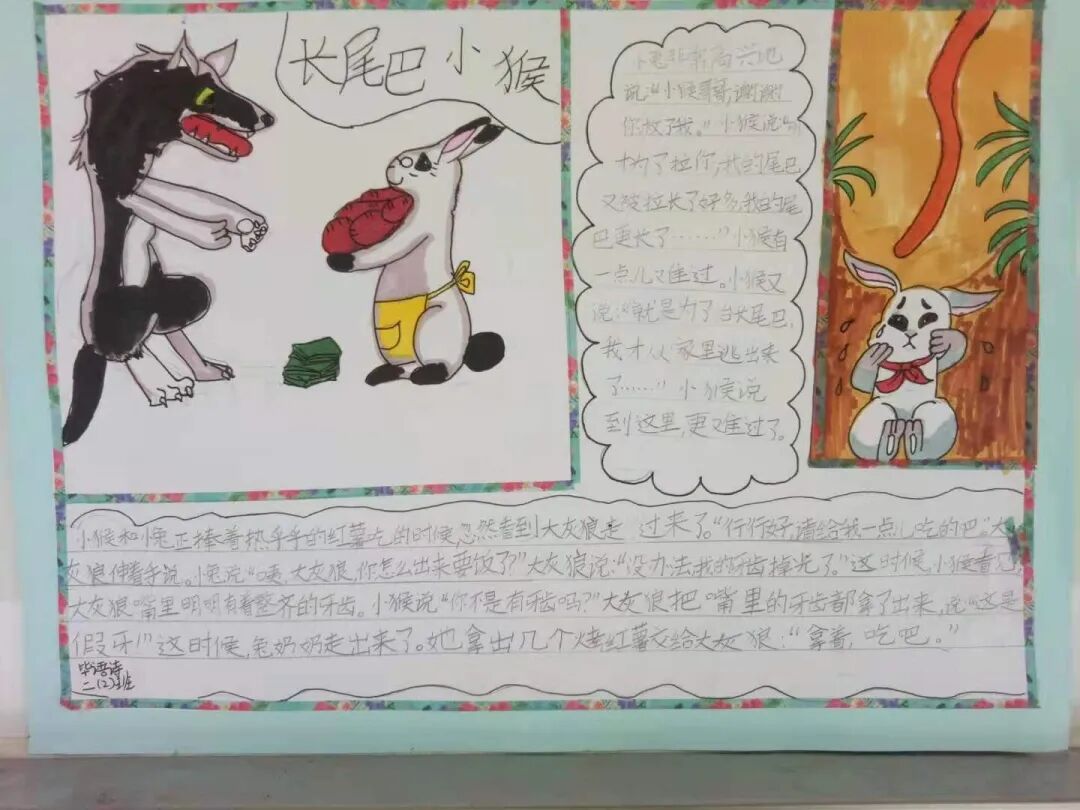 长尾巴小猴
小兔非常高兴地
说:“小猴哥哥,谢谢
你救了我。”小猴说:“
为了拉你,我的尾巴
又被拉长了好多,我的尾
巴更长了……”小猴有
一点儿又难过。小猴又
说:“就是为了长尾巴,
我才从家里逃出来
了……”小猴说
到这里,更难过了。
小猴和小兔正捧着热乎乎的红薯吃的时候,忽然看到大灰狼走过来了。“行行好,请给我一点儿吃的吧。”大
灰狼伸着手说。小兔说:“咦,大灰狼,你怎么出来要饭了?”大灰狼说:“没办法,我的牙齿掉光了。”这时候,小猴看见
大灰狼嘴里明明有着整齐的牙齿。小猴说“你不是有牙齿吗?”大灰狼把嘴里的牙齿都拿了出来,说“这是
假牙!”这时候,兔奶奶走出来了。她拿出几个烤红薯交给大灰狼:“拿着,吃吧。”
二(2)班